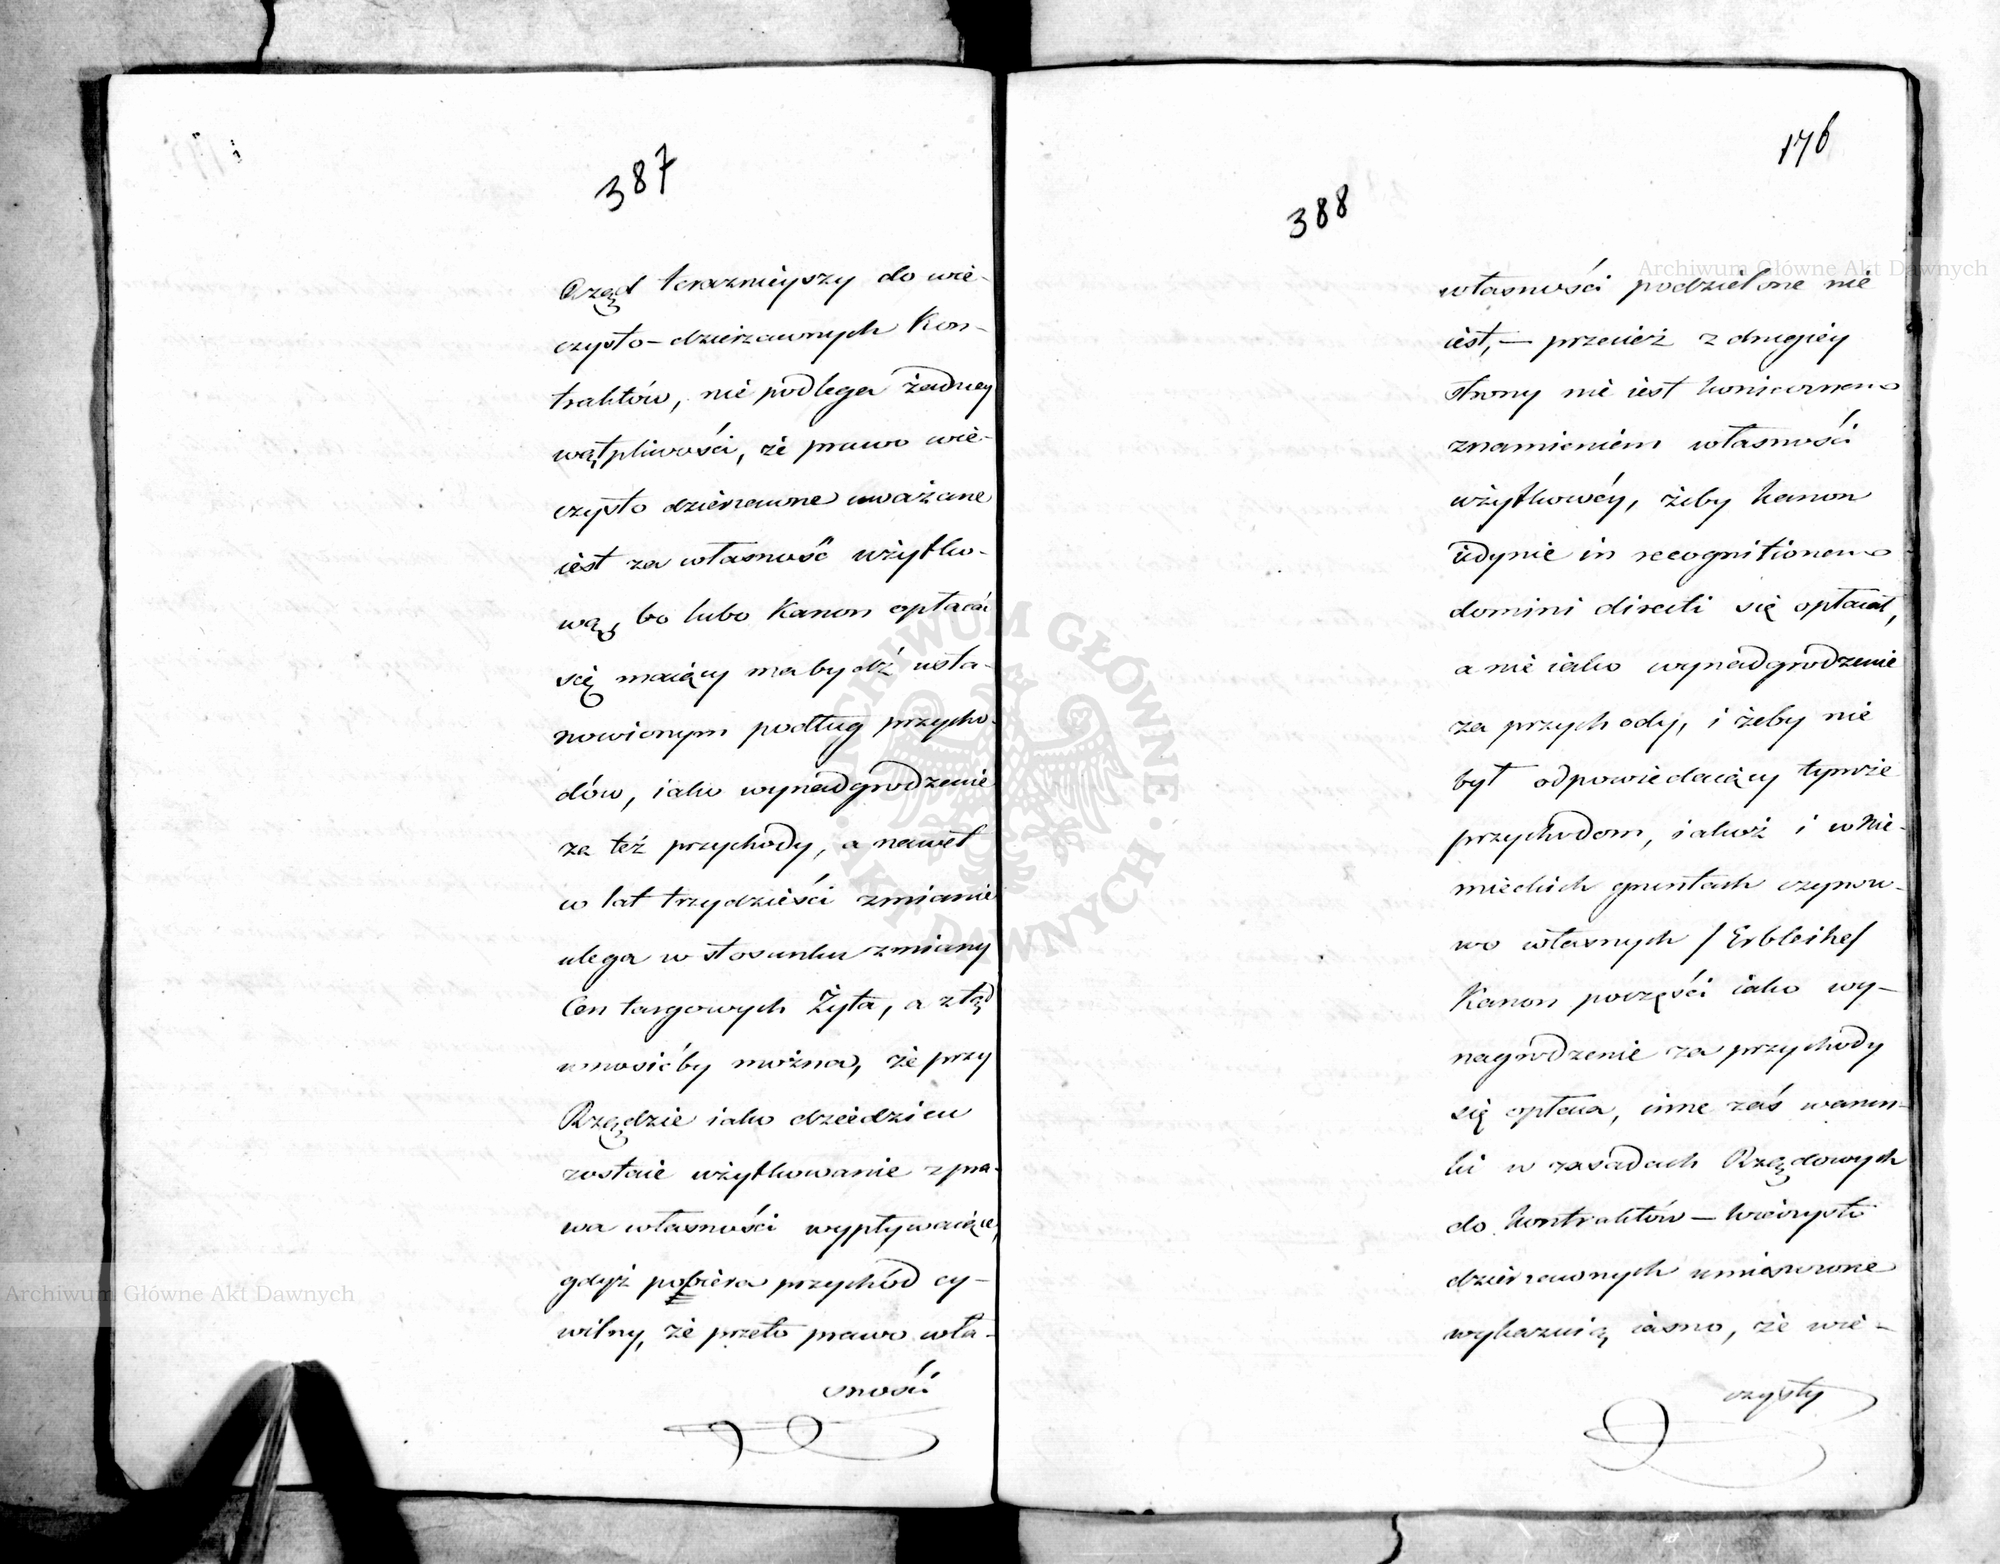 387
Rząd teraznieyszy do wie-
czysto-dzierzawnych Kon-
traktów, nie podlega żadney
wątpliwości, że prawo wie-
czysto dzierzawne uważane
iest za własność użytko-
wą, bo lubo Kanon opłacać
się maiący ma bydź usta-
nowionym podług przycho-
dów, iako wynadgrodzenie
za też przychody, a nawet
w lat trzydzieści zmianie
ulega w stosunku zmiany
Cen targowych Żyta, a ztąd
wnosićby można, że przy
Rządzie iako dziedzicu
zostaie użytkowanie z pra-
wa własności wypływaiące,
gdyż pobiera przychód cy-
wilny, że przeto prawo wła-
sności
176
388
własności podzielone nie
iest, — przecież z drugiey
strony nie iest koniecznem
znamieniem własności
użytkowéy, żeby kanon
iedynie in recognitionem
domini directi się opłacał,
a nie iako wynadgrodzenie
za przychody, i żeby nie
był odpowiedaiący tymże
przychodom, iakoż i w Nie-
mieckich gruntach czynszo-
wo własnych / Erbleihe/
Kanon poczęści iako wy-
nagrodzenie za przychody
się opłaca, inne zaś warun-
ki w zasadach Rządowych
do kontraktów — wieczysto
dzierzawnych umieszczone
wykazuią iasno, że wie-
czysty
Archiwum Główne Akt Dawnych
Archiwum Główne Akt Dawnych
ARCHIWUM GŁÓWNE AKT DAWNYCH